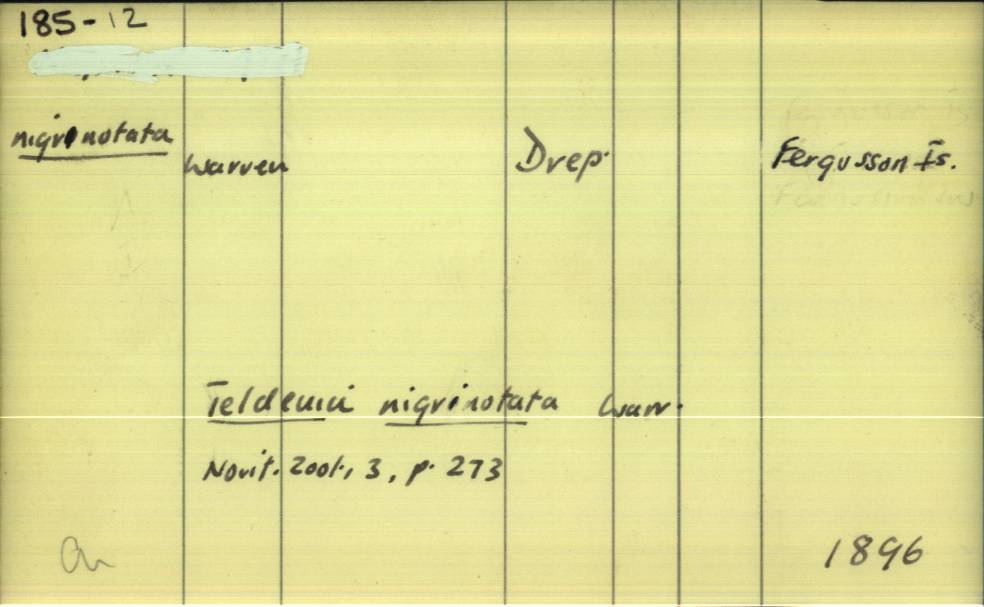 185-12
nigrinotata Warren Drep. Fergusson Is.
Teldenia nigrinotata Warr.
Novit. Zool., 3, p. 273
1896